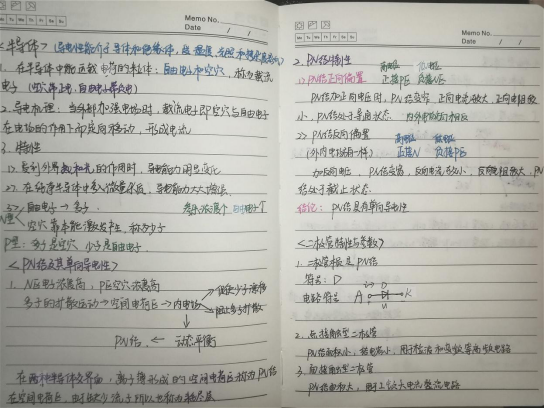 Memo No.
Date / /
Mo Tu We Th Fr Sa Su
<半导体>(导电性能介于导体和绝缘体
1. 在半导体中能运载电荷的粒体:自由电子和空穴 称为载流
子
2. 导电机理:当外部加强电场时,载流子即空穴与自由电子
在电场的作用下 定向移动,形成电流
3. 特性
1>. 受到外界 和光的作用时,导电能力明显变化
2>. 在纯净半导体中掺入微量杂质,导电能力大大增强
3>. 自由电子→多子
N型<
空穴 靠本能激发产生,称为少子
P型:多子是空穴 少子是自由电子.
<PN结及其单向导电性>
1. N区电子浓度高,P区空穴浓度高
多子的扩散运动→空间电荷区→内电场
促使少子漂移
阻止多子扩散
PN结. ← 动态平衡
在两种半导体交界面,离子薄形成的空间电荷区称为PN结
在空间电荷区,由于缺少 子所以也称为耗尽层
Memo No.
Date / /
Mo Tu We Th Fr Sa Su
2. PN结特性
高电位 低电位
1>PN结正向偏置 正接P区 负接N区
PN结加正向电压时,PN结变窄,正向电流较大,正向电阻较
小,PN结处于导通状态. 内外电场方向相反
2>PN结反向偏置 高电位 低电位
(外内电场有一样) 正接N 负接P区
加反向电压,PN结变宽,反向电流较小,反向电阻较大,PN
结处于截止状态.
结论:PN结具有单向导电性
<二极管特性与参数>
1. 二极管就是PN结
符号:D
电路符号 A K
2. 点接触型二极管
PN结面积小,结电容小,用于检波和变频等高频电路
3. 面接触型二极管
PN结面积大,用于工频大电流整流电路